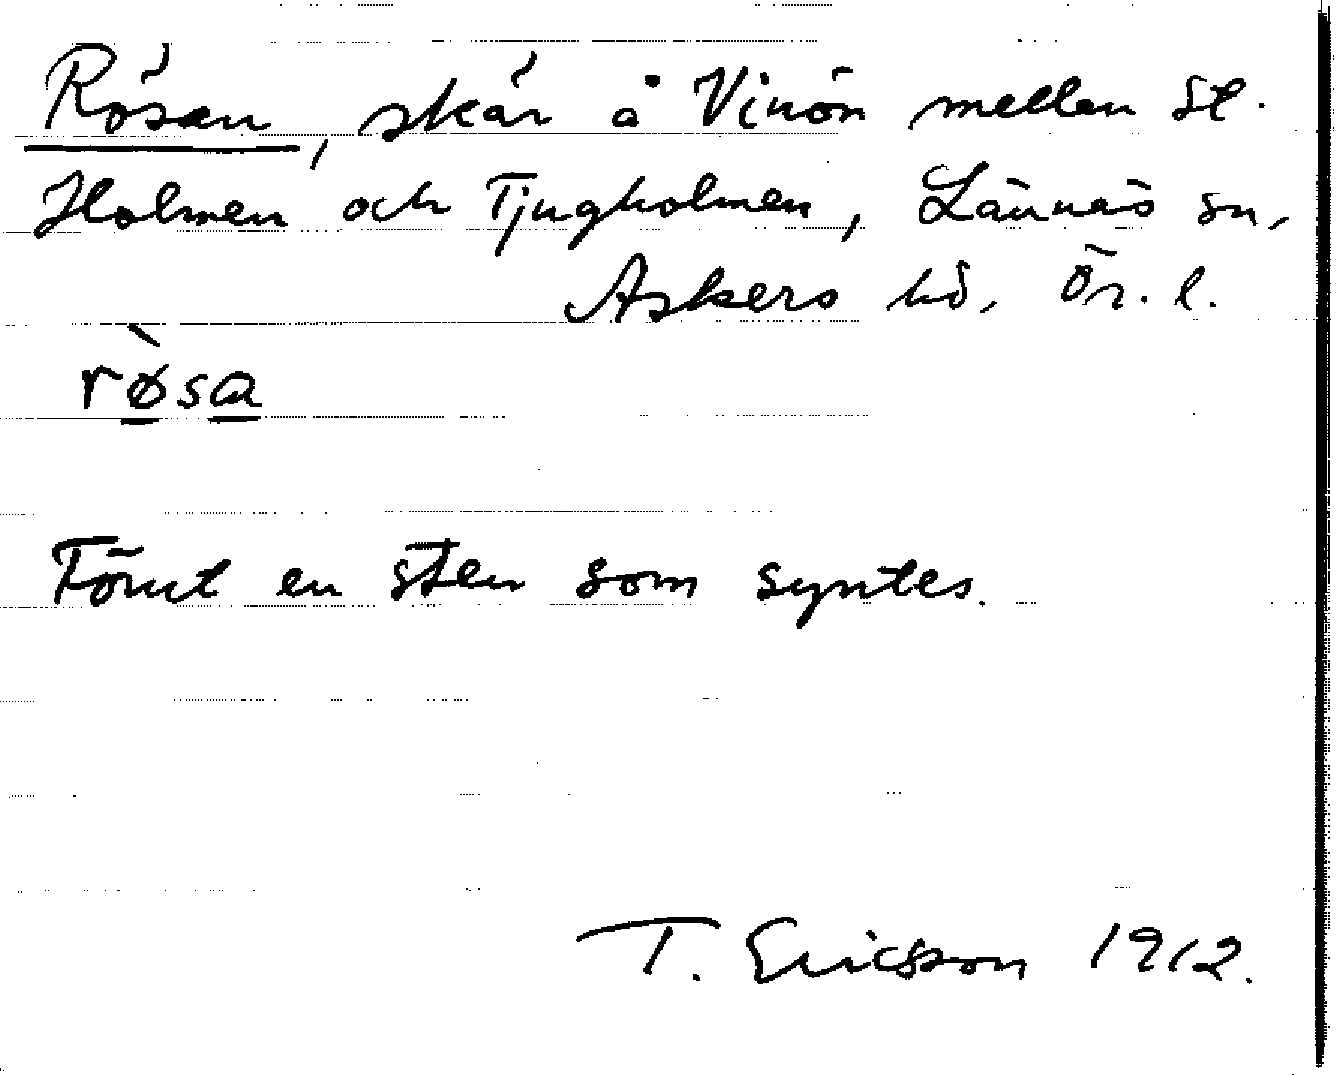 Rösan, skär å Vinön mellan St.
Holmen och Tjugholmen, Lännäs sn,
Askers hd, Ör. l.
rø̀sa
Förut en sten som syntes.
T. Ericsson 1912.